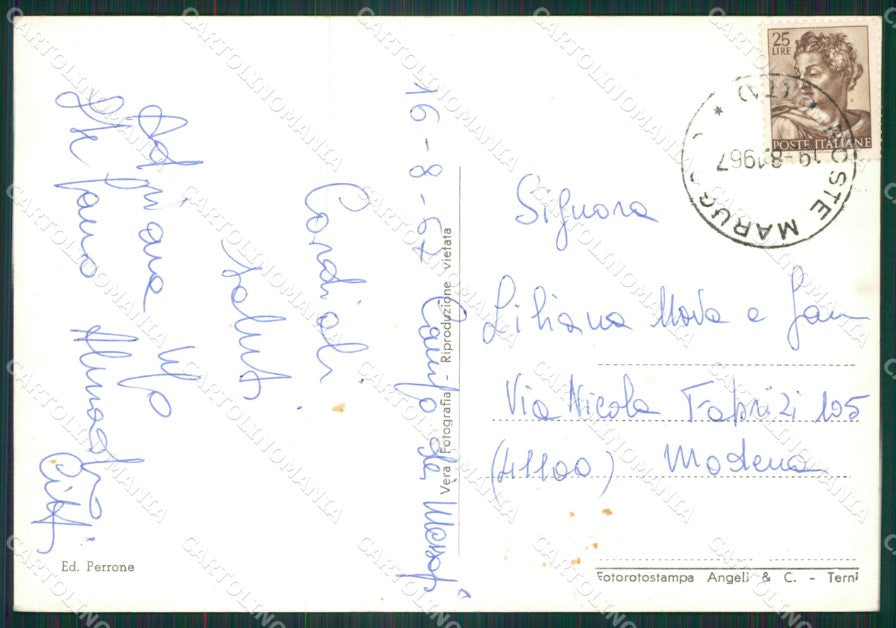 16-8-67 Campo dei
Cordiali
saluti
Adriana
De
25
LIRE
POSTE ITALIANE
POSTE MARUG
(TA)
19-8.1967
Signora
Liliana Mova e fam
Via Nicola Fabrizi 105
(41100) Modena
Vera Fotografia - Riproduzione vietata
Ed. Perrone
Fotorotostampa Angeli & C. - Terni
CARTOLINOMANIA